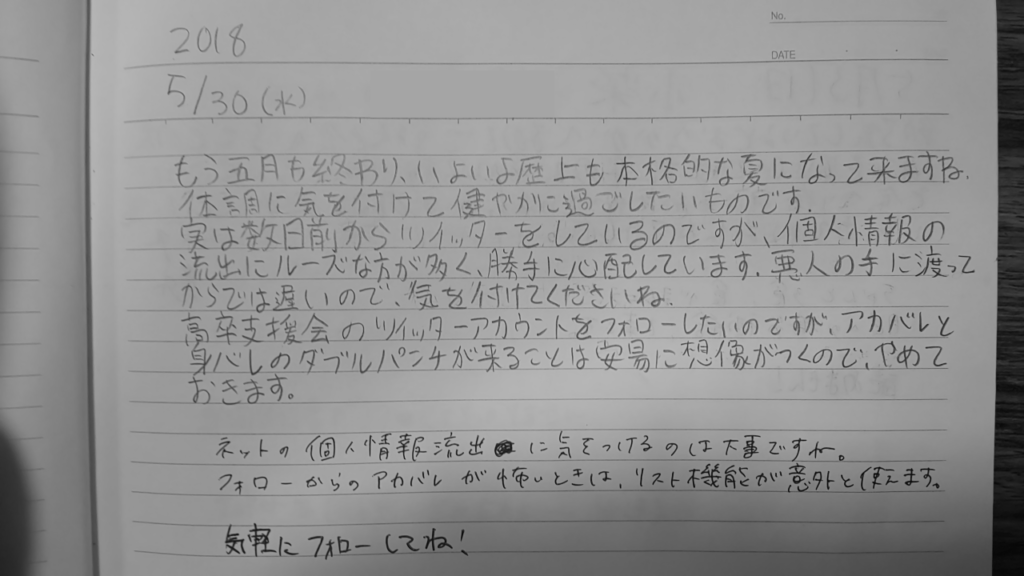 No.
DATE
2018
5/30(水)
もう五月も終わり、いよいよ歴上も本格的な夏になって来ますね.
体調に気を付けて健やかに過ごしたいものです.
実は数日前からツイッターをしているのですが、個人情報の
流出にルーズな方が多く、勝手に心配しています.悪人の手に渡って
からでは遅いので、気を付けてくださいね.
高卒支援会のツイッターアカウントをフォローしたいのですが、アカバレと
身バレのダブルパンチが来ることは安易に想像がつくので、やめて
おきます。
ネットの個人情報流出に気をつけるのは大事ですね。
フォローからのアカバレが怖いときは、リスト機能が意外と使えます。
気軽にフォローしてね!